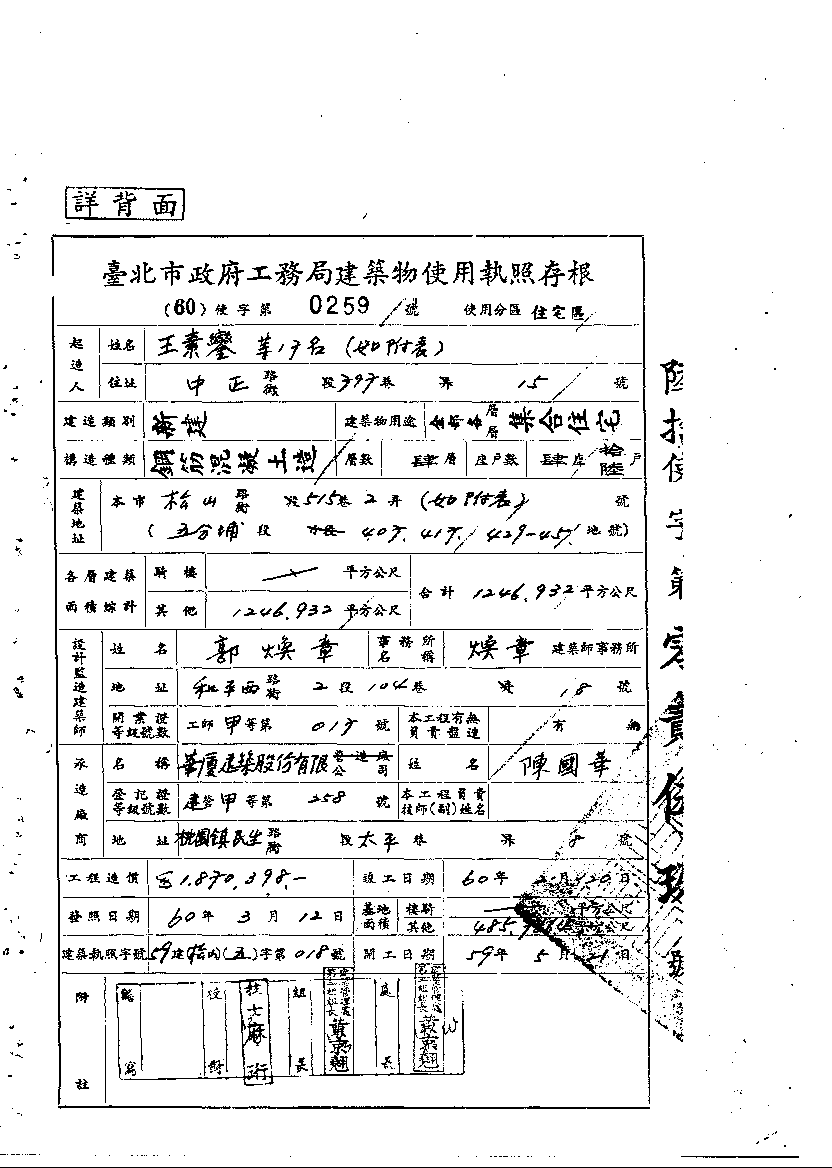 詳背面
臺北市政府工務局建築物使用執照存根
(60)使字第 0259 號 使用分區 住宅區
起造人 姓名 王素鑾 等17名(如附表)
住址 中正 路街 段397巷 弄 15 號
建造類別 新建 建築物用途 全部各層層 集合住宅
構造種類 鋼筋混凝土造 層數 肆層 庄戶數 肆庄拾陸戶
建築地址 本市 松山 路街 段515巷2弄(如附表) 號
(五分埔 段 407. 417. 429-457. 地號)
各層建築面積綜計 騎樓 平方公尺 合計 1246.932 平方公尺
其他 1246.932 平方公尺
設計監造建築師 姓名 郭煥章 事務所名稱 煥章 建築師事務所
地址 和平西 路街 2段104巷 弄 18 號
開業證等級號數 工師甲等第 017 號 本工程有無負責監造 有 無
承造廠商 名稱 華廈建築股份有限 營造廠公司 姓名 陳國華
登記證等級號數 建營甲等第 258 號 本工程負責技師(副)姓名
地址 桃園鎮民生 路街 段 太平 巷 弄 8 號
工程造價 1,870,398.- 竣工日期 60年 月20日
發照日期 60年3月12日 基地面積 騎樓 平方公尺
其他 平方公尺
建築執照字號 59建(松山)(五)字第018號 開工日期 59年5月21日
附註 繕寫 校對 技士 麻珩 組長 黃京翹 處長 黃京翹
陸拾使字第零貳伍玖號